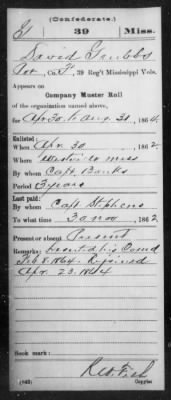 (Confederate.)
G 39 Miss.
David Grubbs
Pvt, Co. F, 39 Reg't Mississippi Vols.
Appears on
Company Muster Roll
of the organization named above,
for Apr 30 to Aug. 31, 1864.
Enlisted:
When Apr. 30, 1862.
Where Miss
By whom Capt. Banks
Period 3 years
Last paid:
By whom Capt. Stephens
To what time 30 Nov, 1862.
Present or absent Present
Remarks: Deserted his Comd
Feb 8. 1864. Rejoined
Apr. 23. 1864
Book mark:
(642) Copyist.